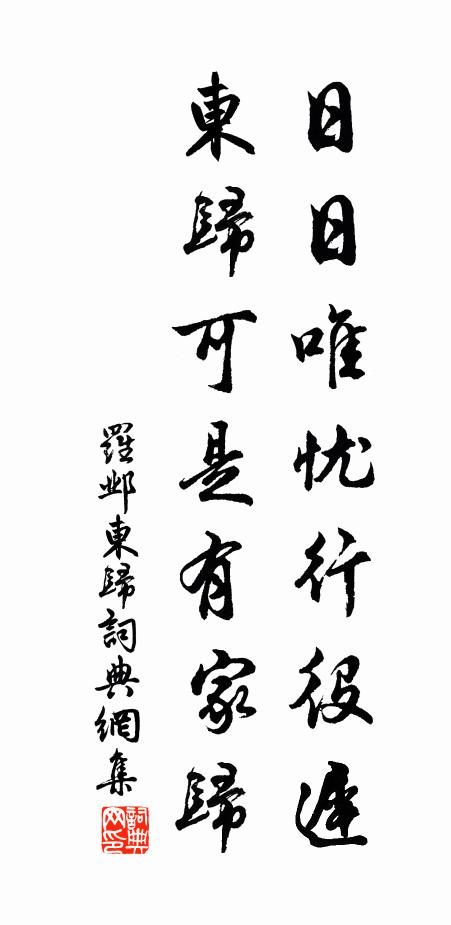 日日唯忧行役遲
東歸可是有家歸
羅鄴東歸詞典網集
詞典网印